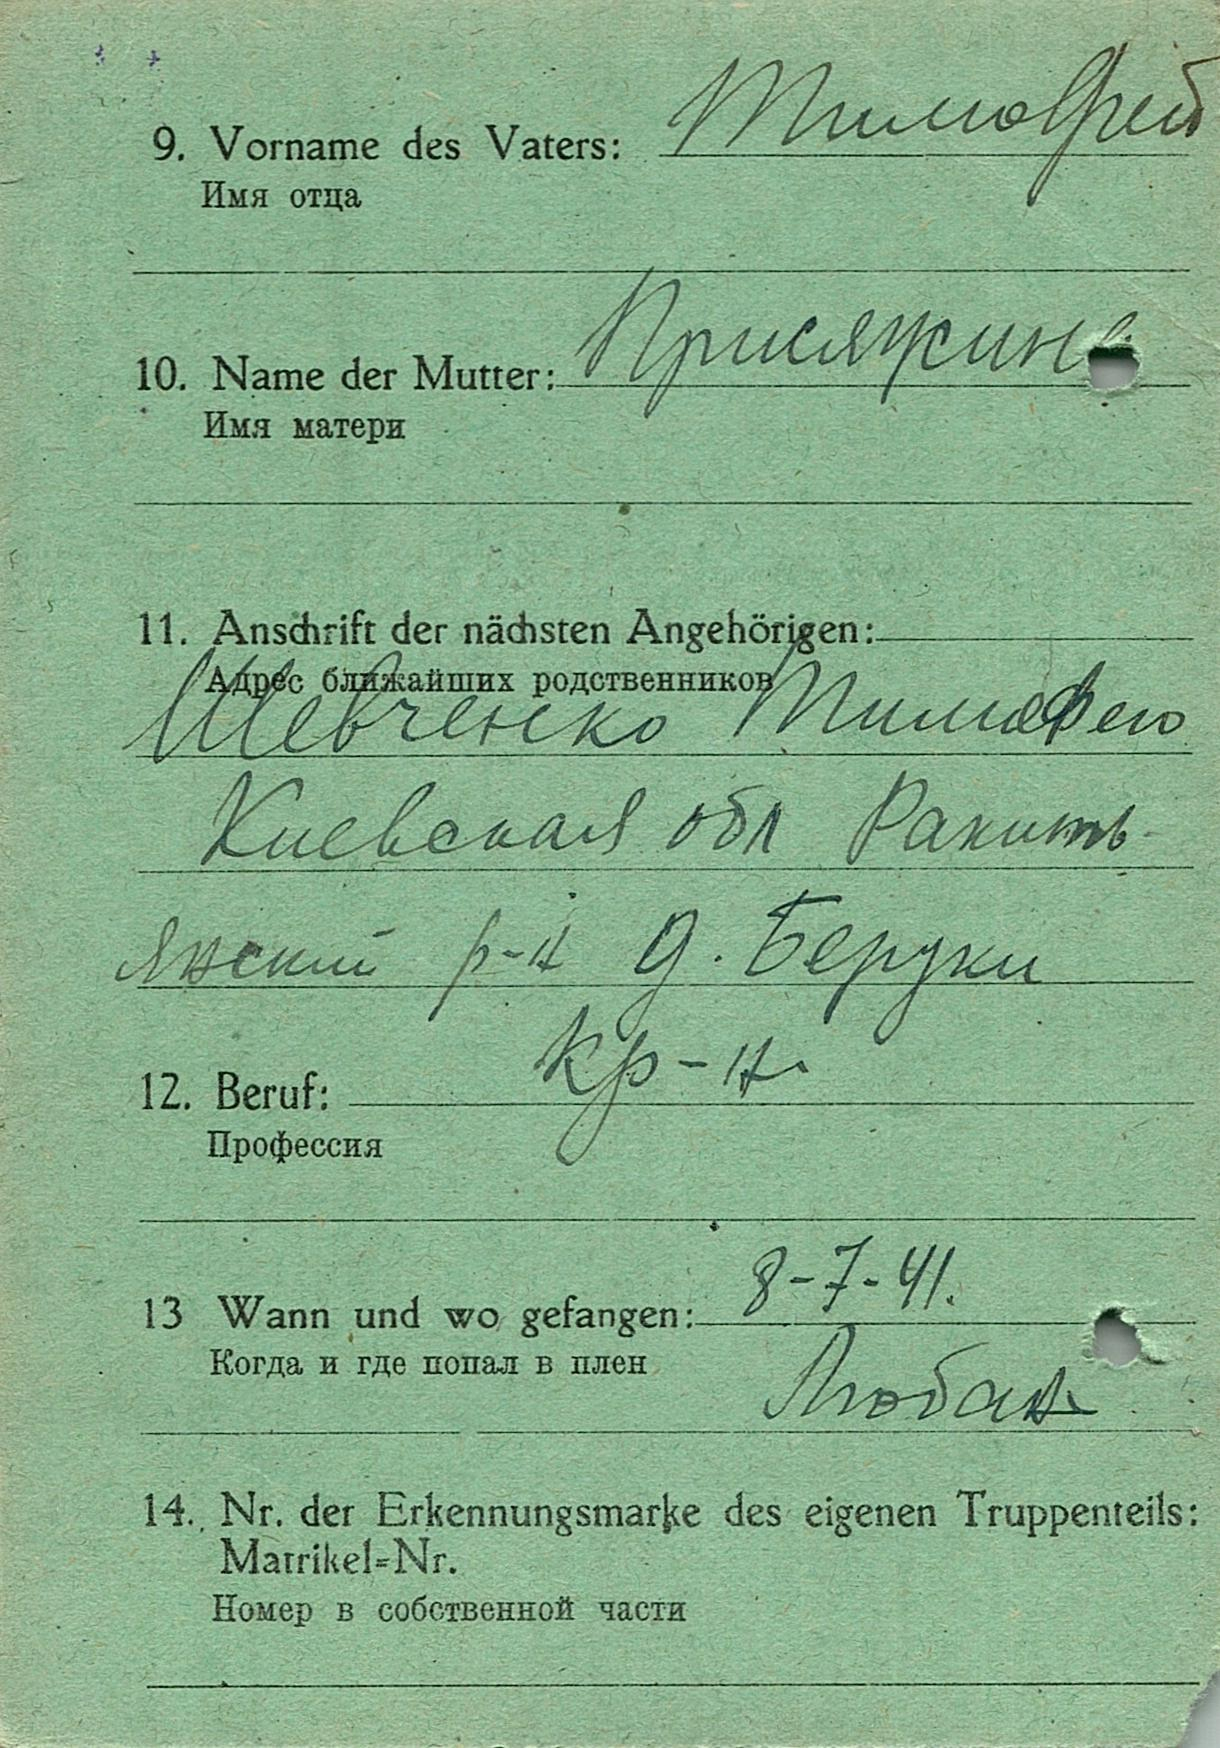 9. Vorname des Vaters: Тимофей
Имя отца
10. Name der Mutter: Присяжин
Имя матери
11. Anschrift der nächsten Angehörigen:
Адрес ближайших родственников
Шевченко Тимофею
Киевская обл Ракитн
янский р-н д. Беруки
12. Beruf: кр-н.
Профессия
13 Wann und wo gefangen: 8-7-41.
Когда и где попал в плен
Любан
14. Nr. der Erkennungsmarke des eigenen Truppenteils:
Matrikel=Nr.
Номер в собственной части